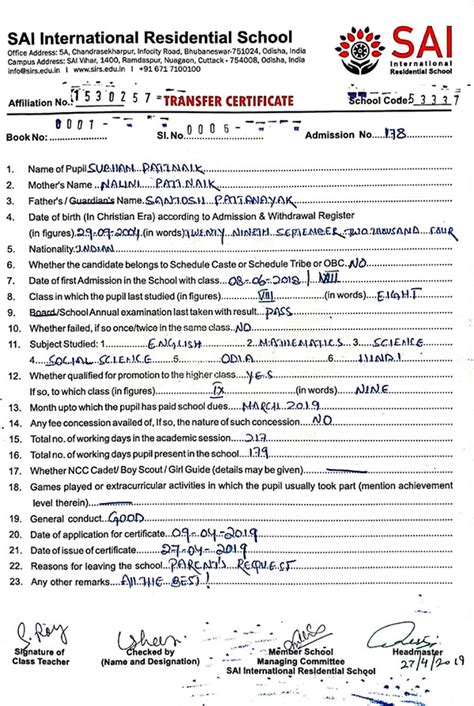 SAI International Residential School
Office Address: 5A, Chandrasekharpur, Infocity Road, Bhubaneswar-751024, Odisha, India
Campus Address: SAI Vihar, 1400, Ramdaspur, Nuagaon, Cuttack - 754008, Odisha, India
info@sirs.edu.in I www.sirs.edu.in I +91 671 7100100
SAI
International
Residential School
Affiliation No. 1530257 TRANSFER CERTIFICATE School Code 53337
Book No: 0001 Sl. No 0006 Admission No. 178
1. Name of Pupil SUBHAM PATTNAIK
2. Mother's Name NALINI PATTNAIK
3. Father's / Guardian's Name SANTOSH PATTANAYAK
4. Date of birth (In Christian Era) according to Admission & Withdrawal Register
(in figures) 29-09-2004 (in words) TWENTY NINTH SEPTEMBER TWO THOUSAND FOUR
5. Nationality INDIAN
6. Whether the candidate belongs to Schedule Caste or Schedule Tribe or OBC NO
7. Date of first Admission in the School with class 08-06-2018 / VIII
8. Class in which the pupil last studied (in figures) VIII (in words) EIGHT
9. Board/School Annual examination last taken with result PASS
10. Whether failed, if so once/twice in the same class NO
11. Subject Studied: 1 ENGLISH 2 MATHEMATICS 3 SCIENCE
4 SOCIAL SCIENCE 5 ODIA 6 HINDI
12. Whether qualified for promotion to the higher class YES
If so, to which class (in figures) IX (in words) NINE
13. Month upto which the pupil has paid school dues MARCH 2019
14. Any fee concession availed of, If so, the nature of such concession NO
15. Total no. of working days in the academic session 217
16. Total no. of working days pupil present in the school 179
17. Whether NCC Cadet/ Boy Scout / Girl Guide (details may be given)
18. Games played or extracurricular activities in which the pupil usually took part (mention achievement
level therein)
19. General conduct GOOD
20. Date of application for certificate 09-04-2019
21. Date of issue of certificate 27-04-2019
22. Reasons for leaving the school PARENT'S REQUEST
23. Any other remarks ALL THE BEST!
Signature of
Class Teacher
Checked by
(Name and Designation)
Member School
Managing Committee
SAI International Residential School
Headmaster
27/4/2019